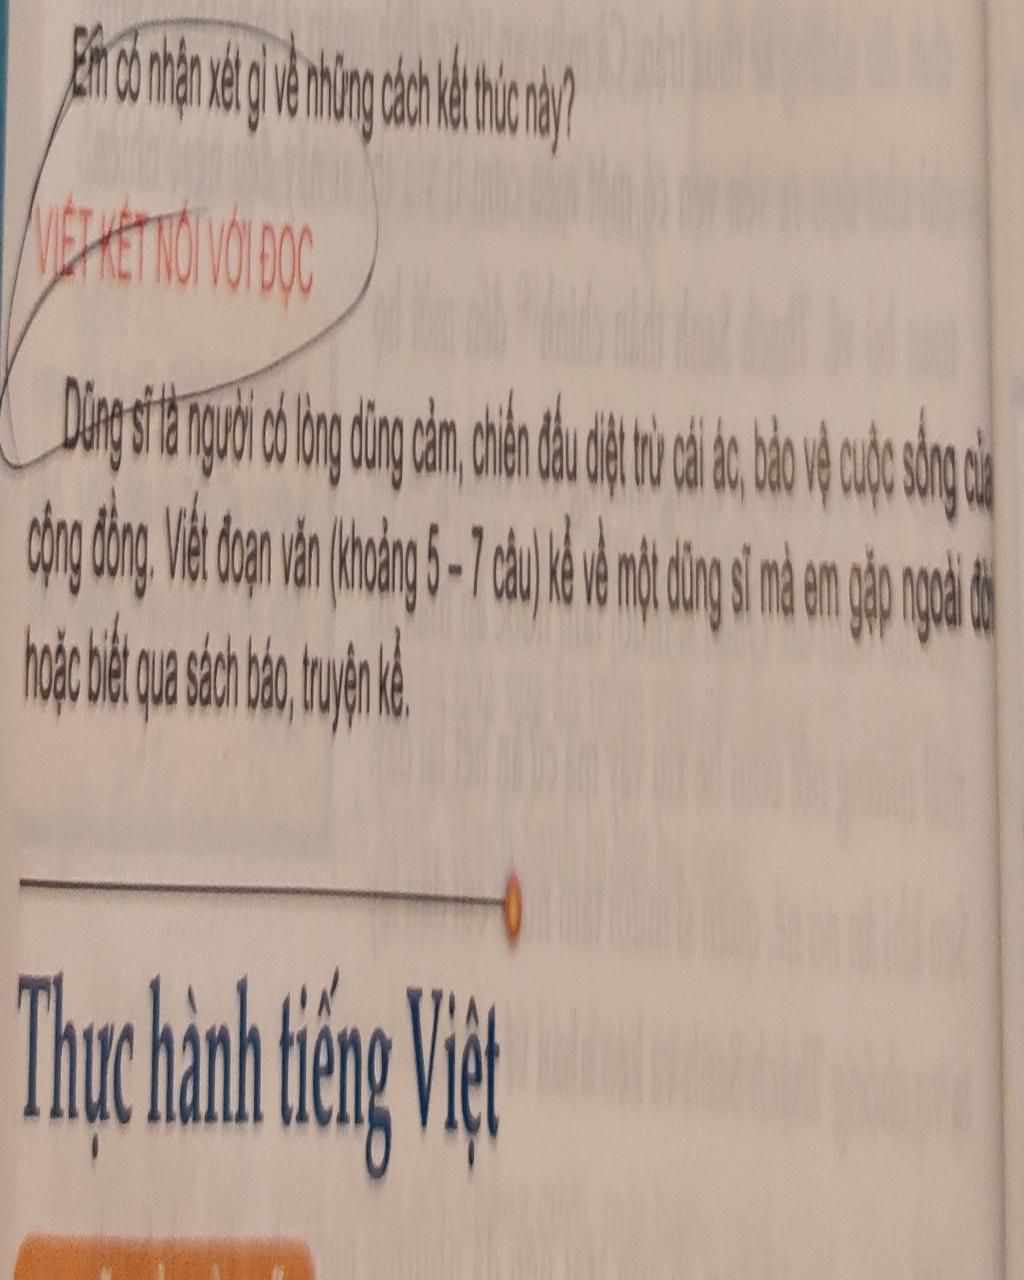 Em có nhận xét gì về những cách kết thúc này?
VIẾT KẾT NỐI VỚI ĐỌC
Dũng sĩ là người có lòng dũng cảm, chiến đấu diệt trừ cái ác, bảo vệ cuộc sống của
cộng đồng. Viết đoạn văn (khoảng 5 – 7 câu) kể về một dũng sĩ mà em gặp ngoài đời
hoặc biết qua sách báo, truyện kể.
Thực hành tiếng Việt